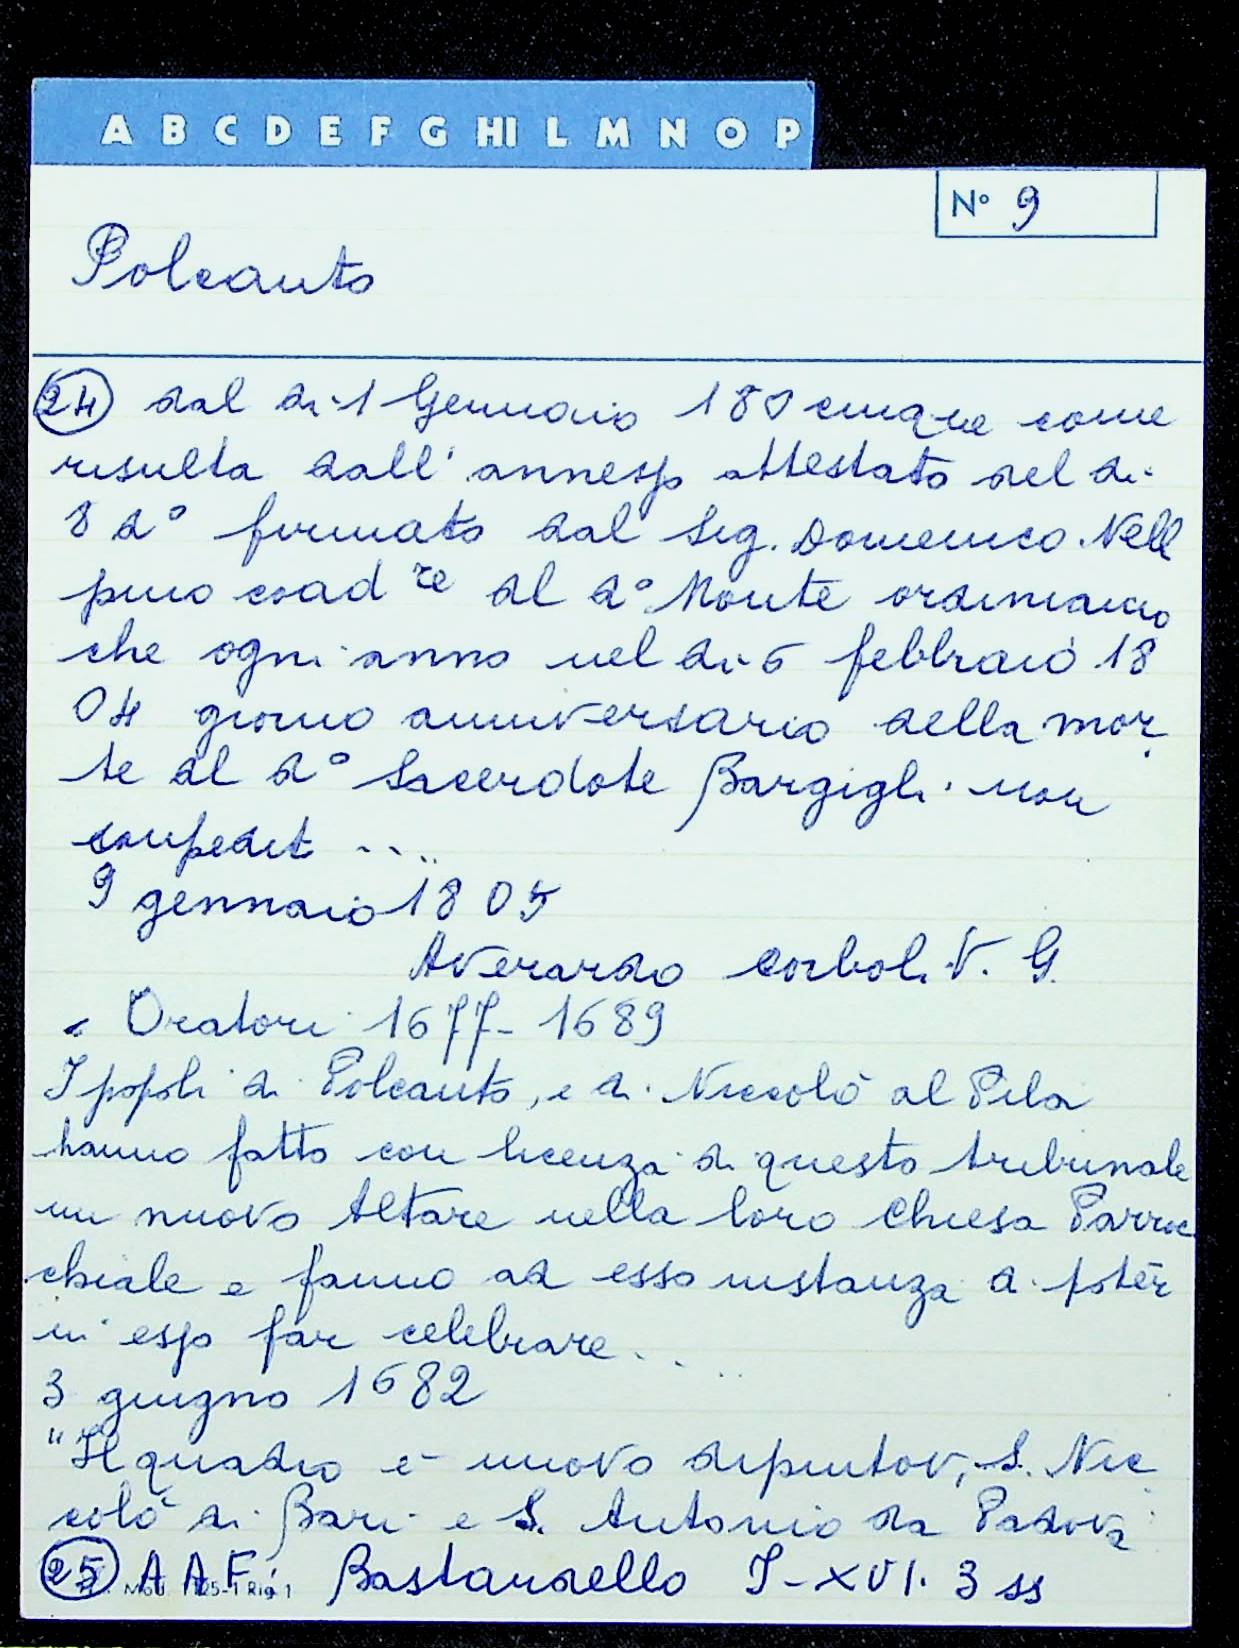 A B C D E F G HI L M N O P
N° 9
Polcanto
24 dal di 1 Gennaio 180cinque come
risulta dall' annesso attestato del di
8 d° firmato dal Sig. Domenico Nell
pmo coad re al d° Monte ordiniamo
che ogni anno nel di 6 febbraio 18
04 giorno anniversario della mor
te al d° Sacerdote Bargigli non
impedit ....
9 gennaio 1805
Averardo Corboli V. G.
Oratori 1677-1689
I popoli di Polcanto, e di Niccolò al Pila
hanno fatto con licenza di questo tribunale
un nuovo Altare nella loro Chiesa Parroc
chiale e fanno ad esso instanza di poter
in esso far celebrare....
3 giugno 1682
"Il quadro è nuovo dipintov, S. Nic
colò di Bari e S. Antonio da Padova
25 A A F. Bastardello I-XVI. 3 ss